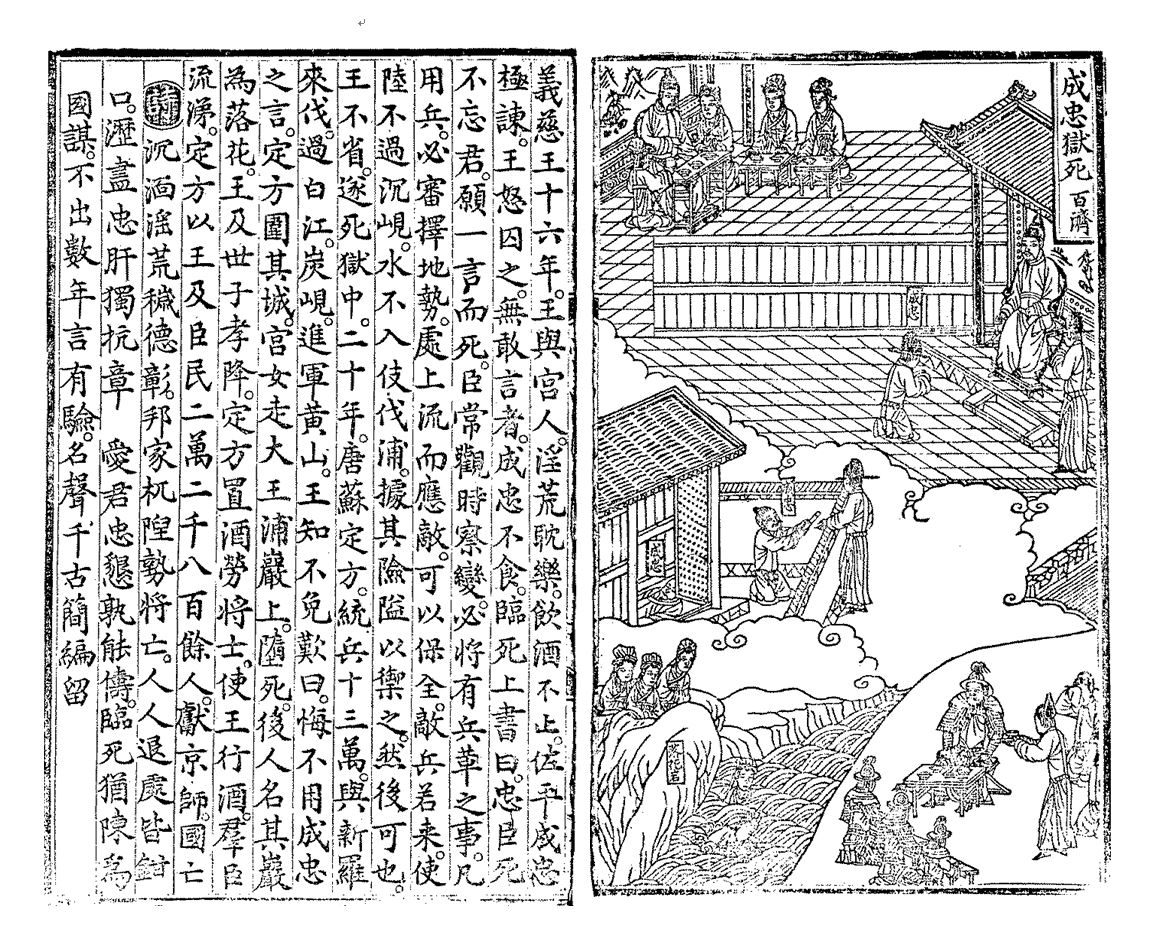 成忠獄死 百濟
成忠
成忠
落花岩
義慈王十六年。王與宮人。淫荒耽樂。飲酒不止。佐平成忠
極諫。王怒囚之。無敢言者。成忠不食。臨死上書曰。忠臣死
不忘君。願一言而死。臣常觀時察變。必將有兵革之事。凡
用兵。必審擇地勢。處上流而應敵。可以保全。敵兵若来。使
陸不過沉峴。水不入伎伐浦。據其險隘以禦之。然後可也。
王不省。遂死獄中。二十年。唐蘇定方。統兵十三萬。與新羅
來伐。過白江。炭峴。進軍黃山。王知不免歎曰。悔不用成忠
之言。定方圍其城。宮女走大王浦巖上。墮死。後人名其巖
為落花。王及世子孝降。定方置酒勞將士。使王行酒。羣臣
流涕。定方以王及臣民二萬二千八百餘人。獻京師。國亡
詩 沉湎淫荒穢德彰。邦家杌隉勢將亡。人人退處皆鉗
口。瀝盡忠肝獨抗章 愛君忠懇孰能儔。臨死猶陳為
國謀。不出數年言有驗。名聲千古簡編留